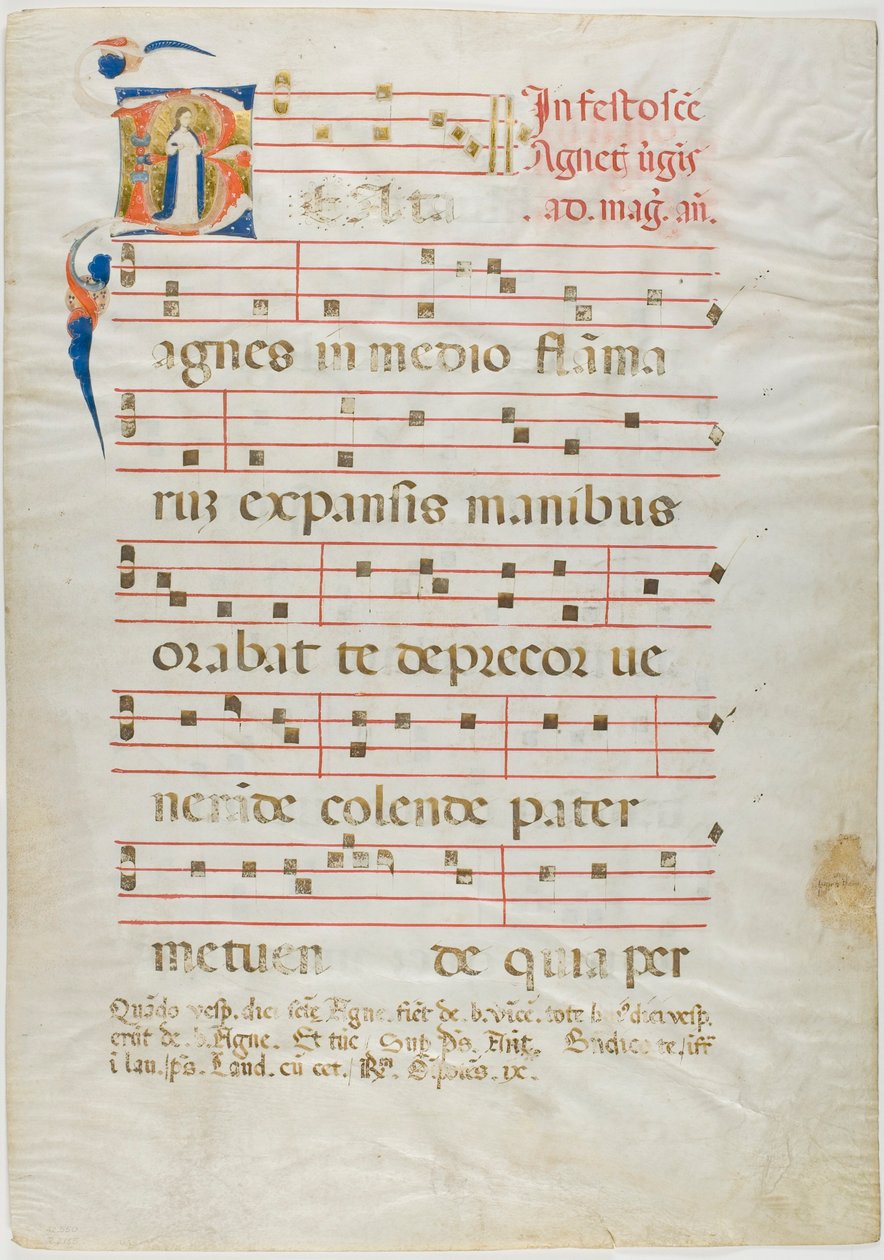 In festo sce̅
Agnet̅ u̅gis̅
BEAta
. ad. mag̅. an̅.
agnes in medio fla̅ma
ruꝫ expansis manibus
orabat te deprecor ue
nera̅de colende pater
metuen de quia per
Qua̅do vesp̅. diei sc̅e Agne. fie̅t de. b. vi̅ce̅. tote diei vesp̅.
eru̅t de. b. Agne. Et tu̅c / Sup̅ p̅s. An̅t. Bn̅dico te /
i̅ lau. /p̅s. Laud. cu̅ cet. /